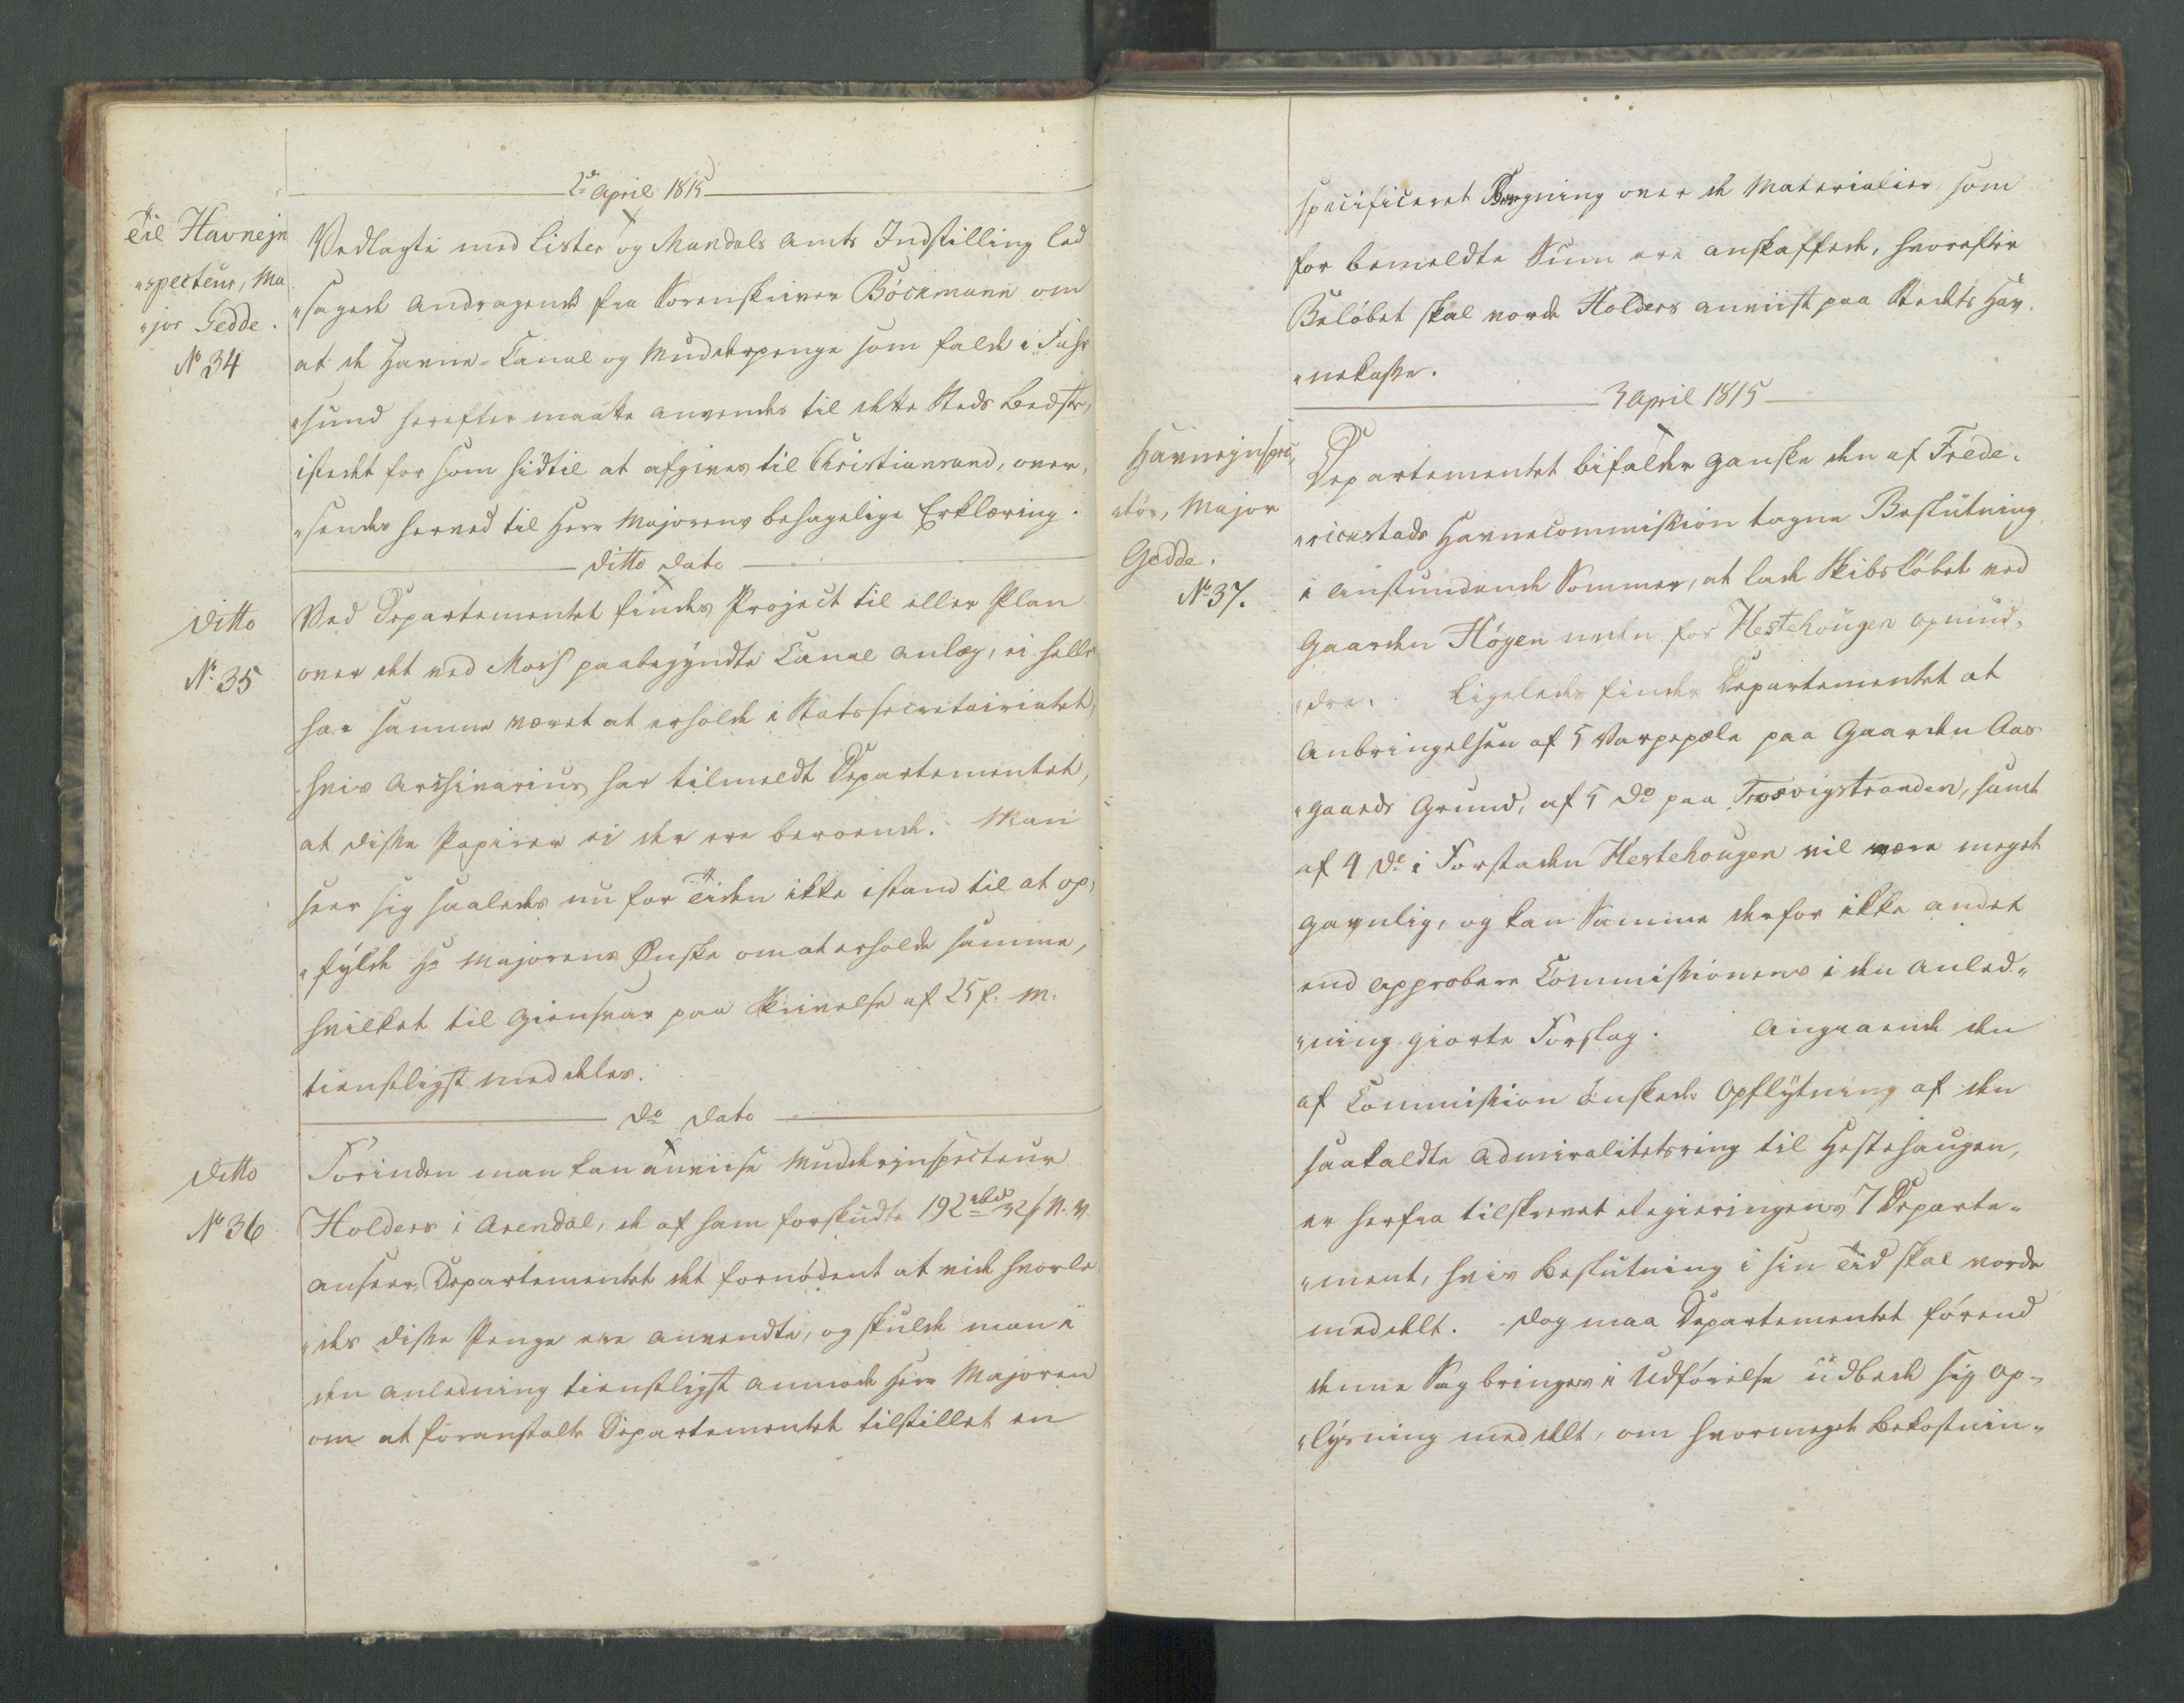 2d April 1815
Til Havnejn
"specteur, Ma
"jor Gedde.
No 34
Vedlagte med Lister og Mandals Amts Indstilling led
"sagede Andragende fra Sorenskriver Böckmann om
at de Havne-Canal og Mudderpenge som falde i Fahr
"sund herefter maatte anvendes til dette Steds Bedste,
istedet for som hidtil at afgives til Christiansand, over,
"sendes herved til Herr Majorens behagelige Erklæring.
ditto dato
ditto
No 35
Ved Departementet findes Project til eller Plan
over det ved Moss paabegyndte Canal Anlæg, ei heller
har samme været at erholde i Statssecretairiatet,
hvis Archivarius har tilmeldt Departementet,
at disse Papirer ei der ere beroende. Man
seer sig saaledes nu for Tiden ikke istand til at op,
"fylde Hr Majorens Ønske om at erholde samme,
hvilket til Giensvar paa Skrivelse af 25 f. M.
tienstligst meddeles.
do dato
ditto
No 36
Forinden man kan anviise Mudderinspecteur
Holders i Arendal, de af ham forskudte 192 rbd 32 s N. V.
anseer Departementet det fornödent at vide hvorle
"des disse Penge ere anvendte, og skulde man i
den Anledning tienstligst anmode Herr Majoren
om at foranstalte Departementet tilstillet en
specificeret Regning over de Materialier som
for bemeldte Sum ere anskaffede, hvorefter
Belöbet skal vorde Holders anviist paa Stedets Hav.
"nekasse.
3 April 1815
Havneinspec,
"tör, Major
Gedde.
No 37.
Departementet bifalder ganske den af Frede.
"ricstads Havnecommission tagne Beslutning
i anstundende Sommer, at lade Skibslöbet ved
Gaarden Högen neden for Hestehougen opmud,
"dre. Ligeledes finder Departementet at
Anbringelsen af 5 Varpepæle paa Gaarden Aas
"gaards Grund, af 5 do paa Trosvigstranden, samt
af 4 do i Forstaden Hestehougen vil være meget
gavnlig, og kan Samme derfor ikke andet
end approbere Commissionens i den Anled"
"ning giorte Forslag. Angaaende den
af Commission önskede Opflytning af den
saakaldte Admiralitetsring til Hestehaugen,
er herfra tilskrevet Regieringens 7 Departe"
"ment, hvis Beslutning i sin Tid skal vorde
meddelt. Dog maa Departementet förend
denne Sag bringes i Udförelse udbede sig Op"
"lysning meddelt, om hvormeget Bekostnin"